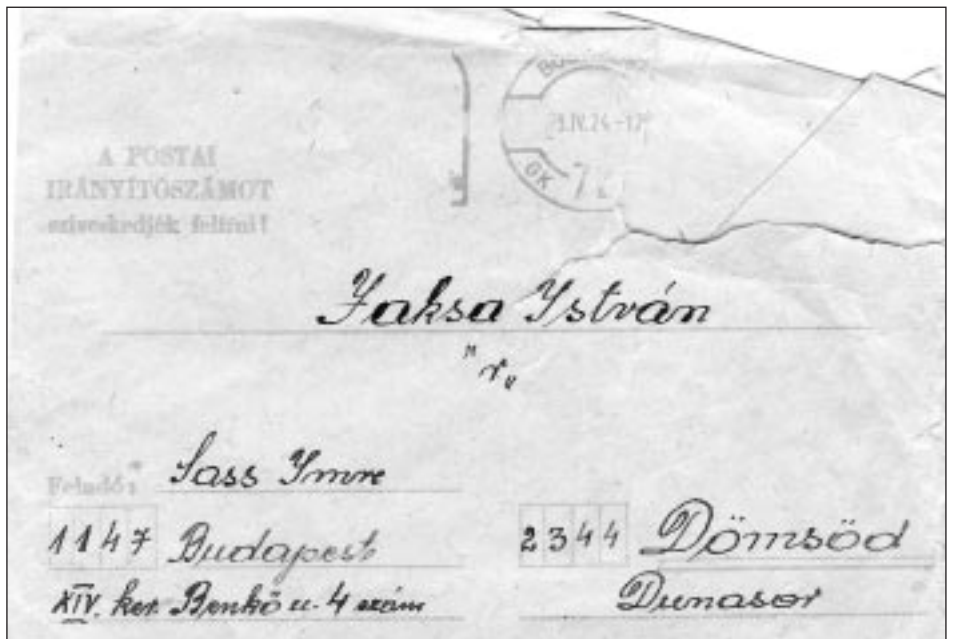 A POSTAI
IRÁNYÍTÓSZÁMOT
sziveskedjék felírni!
IV.24-17
GK 7
Jaksa István
" r. "
Feladó: Sass Imre
1147 Budapest
XIV. ker. Benkő u. 4 szám
2344 Dömsöd
Dunasor